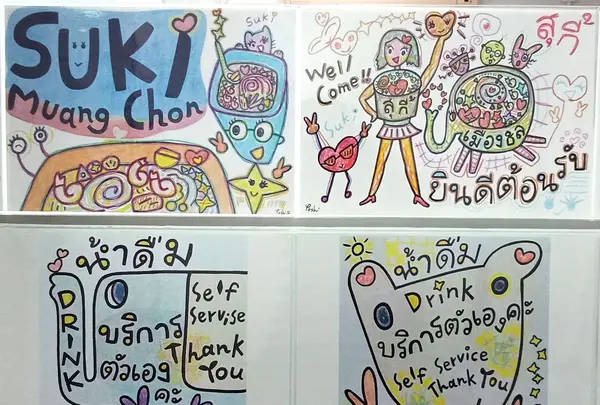 SUKi
Muang Chon
Suki
Well
Come!!
สุกี้²
สุกี้²
Suki
เมืองชล
ยินดีต้อนรับ
Yoshi
น้ำดื่ม
DRINK
บริการ
ตัวเอง
คะ
Self
Servise
Thank
You
น้ำดื่ม
Drink
บริการตัวเองคะ
Self Service
Thank You